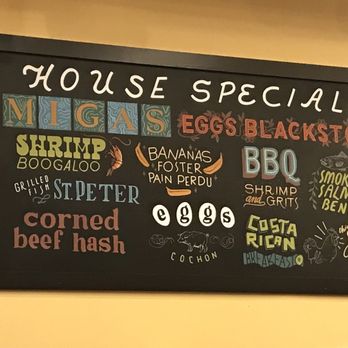 HOUSE SPECIAL
MIGAS
EGGS BLACKST
SHRIMP
BOOGALOO
BANANAS
FOSTER
PAIN PERDU
BBQ
SHRIMP
and GRITS
SMOK
SALM
BEN
GRILLED
FISH
ST. PETER
corned
beef hash
eggs
COCHON
COSTA
RICAN
BREAKFAST